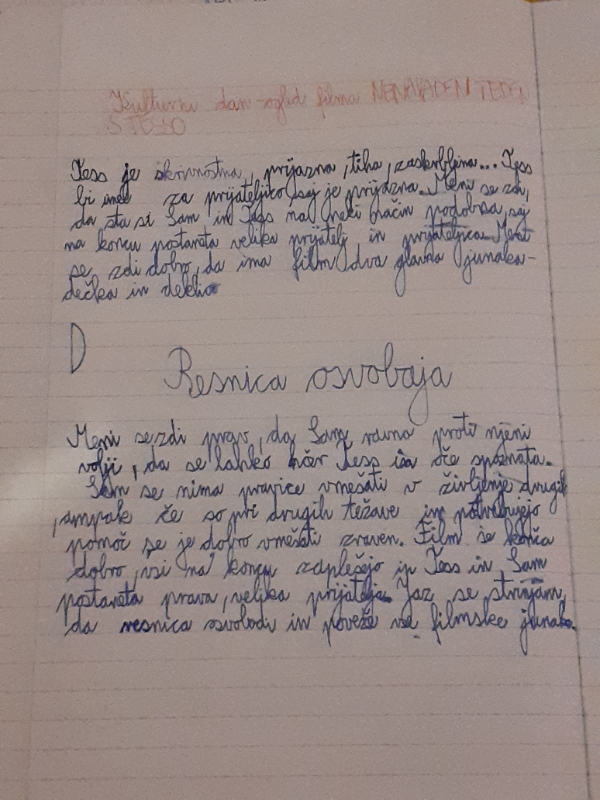 Kulturni dan-ogled filma NENAVADEN TEDEN
S TESSO
Tess je skrivnostna, prijazna, tiha, zaskrbljena... Tess
bi imel za prijateljico saj je prijazna. Meni se zdi,
da sta si Sam in Tess na neki način podobna, saj
na koncu postaneta velika prijatelj in prijateljica. Meni
se zdi dobro, da ima film dva glavna junaka-
dečka in deklico
D
Resnica osvobaja
Meni se zdi prav, da Sam ravna proti njeni
volji, da se lahko hčer Tess in oče spoznata.
Sam se nima pravice vmešati v življenje drugih
, ampak če so pri drugih težave in potrebujejo
pomoč se je dobro vmešati zraven. Film se konča
dobro, vsi na koncu zaplešejo in Tess in Sam
postaneta prava, velika prijatelja. Jaz se strinjam,
da resnica osvobodi in poveže vse filmske junake.